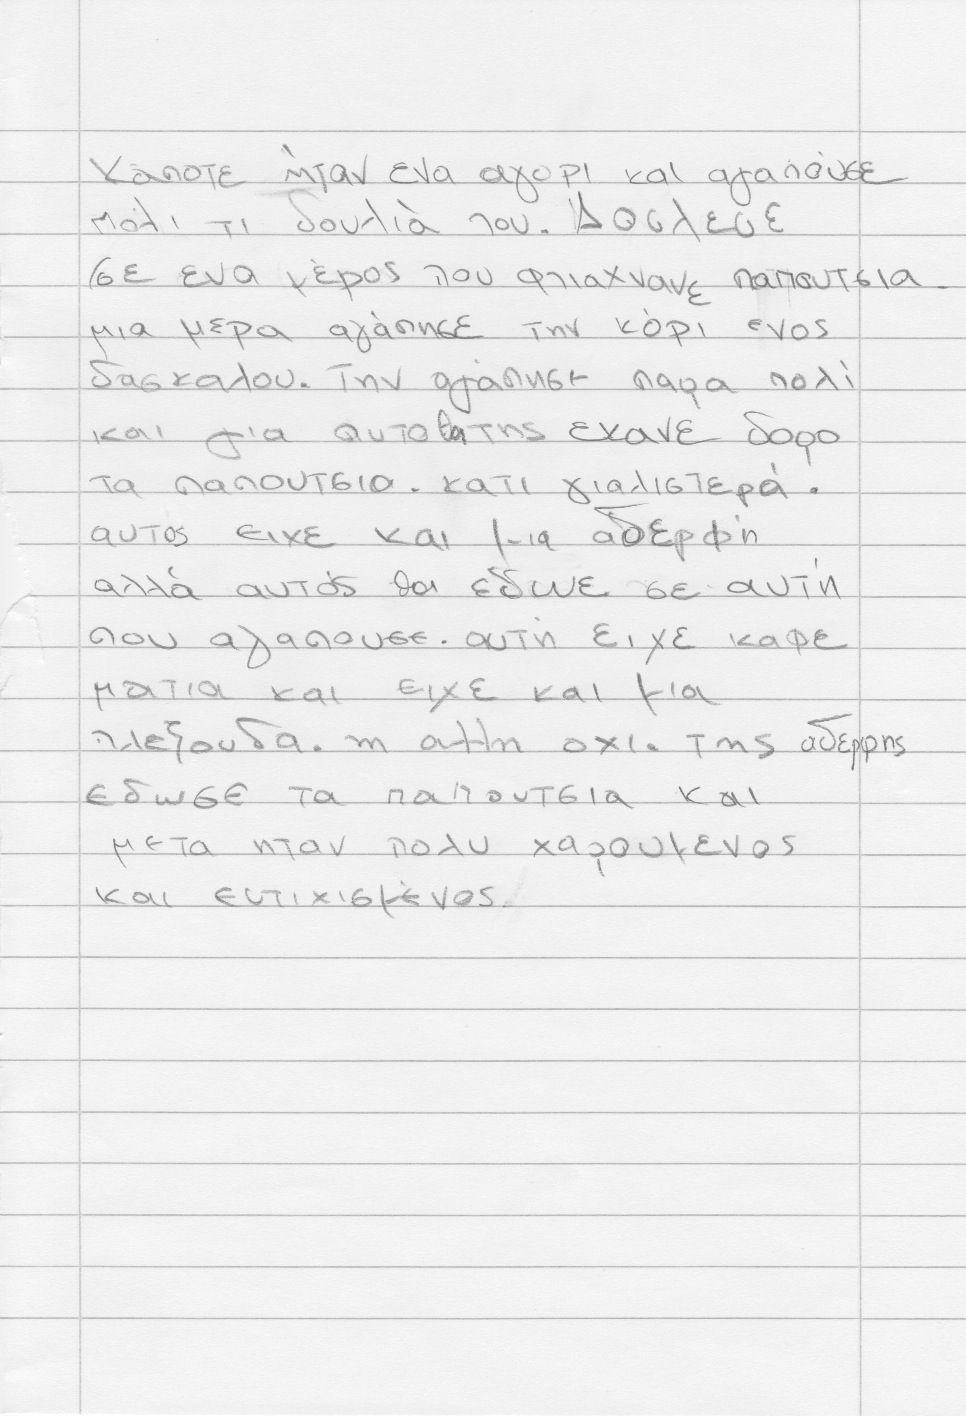 Κάποτε ήταν ενα αγορι και αγαπούσε
πολι τι δουλιά του. Δουλεσε
σε ενα μέρος που φτιαχνανε παπουτσια.
μια μερα αγάπησε την κόρι ενος
δασκαλου. Την αγάπησε παρα πολί
και για αυτο θα της εκανε δορο
τα παπουτσια. κατι γιαλιστερά.
αυτός ειχε και μια αδερφή
αλλά αυτός θα έδωσε σε αυτή
που αγαπουσε. αυτή ειχε καφε
ματια και ειχε και μια
πλεξουδα. η αλλη οχι. της αδερφης
εδωσε τα παπουτσια και
μετα ηταν πολυ χαρουμενος
και ευτιχισμένος.